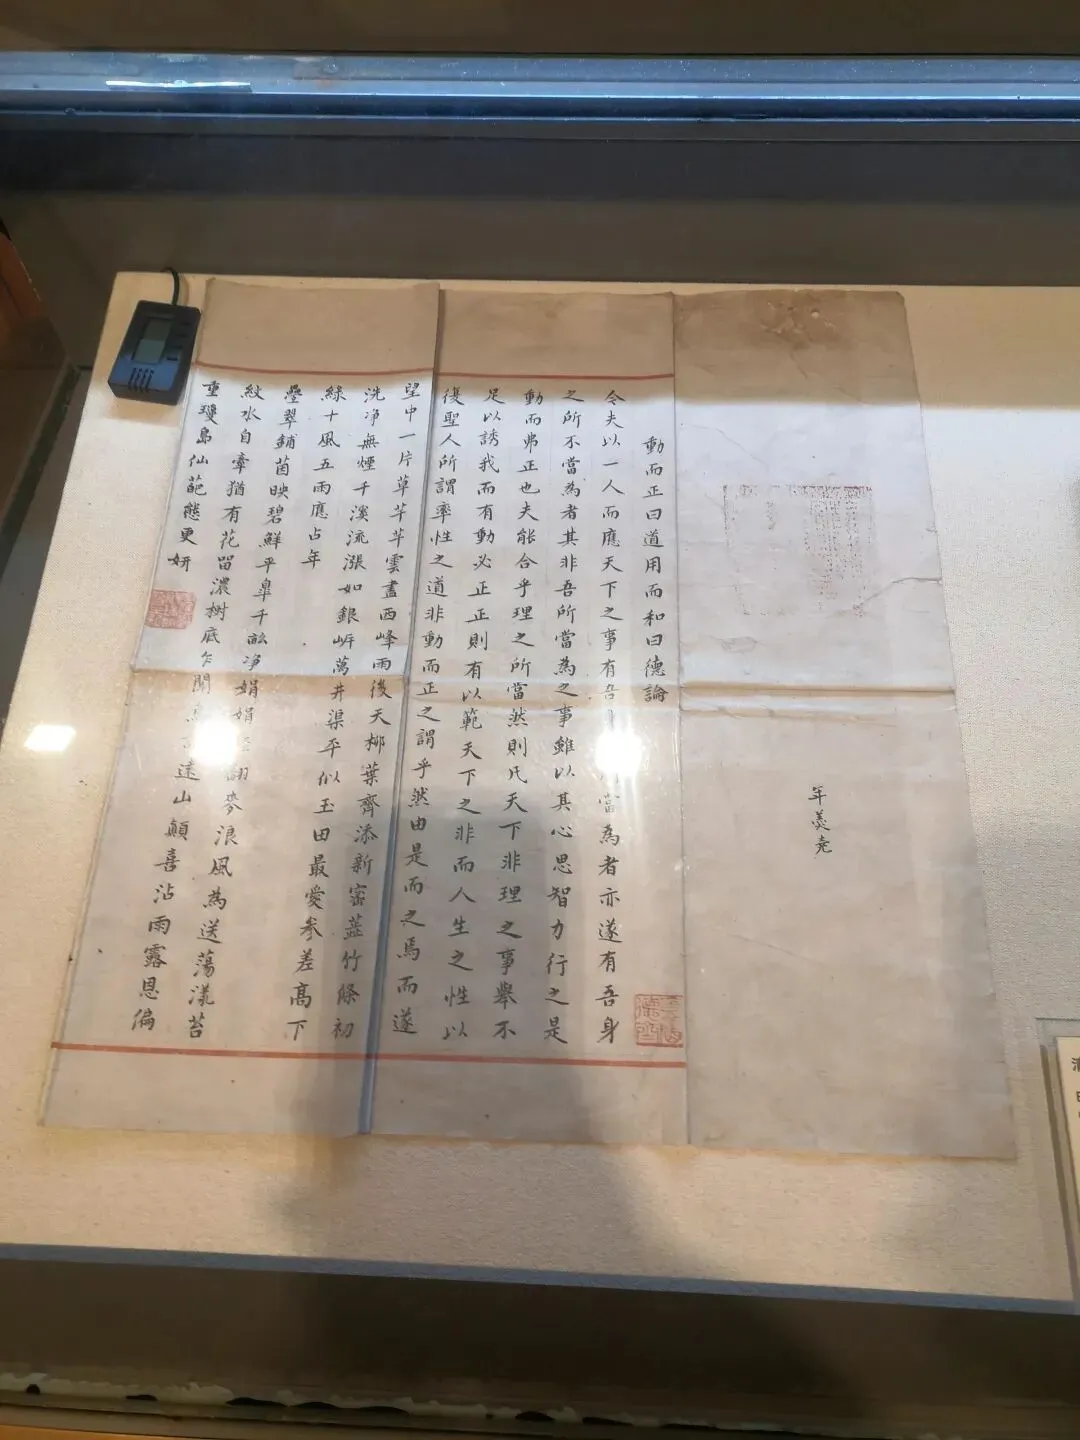 年羹堯
動而正曰道用而和曰德論
今夫以一人而應天下之事有吾身當為者亦遂有吾身
之所不當為者其非吾所當為之事雖以其心思智力行之是
動而弗正也夫能合乎理之所當然則凡天下非理之事舉不
足以誘我而有動必正正則有以範天下之非而人生之性以
復聖人所謂率性之道非動而正之謂乎然由是而之焉而遂
望中一片草芊芊雲盡西峰雨後天柳葉齊添新密蓋竹條初
洗净無煙千溪流漲如銀㟁萬井渠平似玉田最愛参差高下
綠十風五雨應占年
疊翠鋪茵映碧鮮平皐千畝净娟娟翻麥浪風為送蕩漾苔
紋水自牽猶有花留濃樹底乍聞遠山巔喜沾雨露恩偏
重瓊島仙葩態更妍